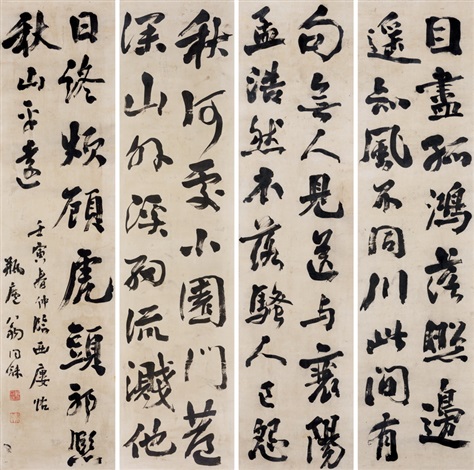 目盡孤鴻落照邊
遥知風不同川此間有
句無人見送與襄陽
孟浩然木落騷人已怨
秋何處小園門巷
深山外溪細流濺他
日終煩顧虎頭郭熙
秋山平遠
壬寅春仲臨西廔帖
瓶廬翁同龢